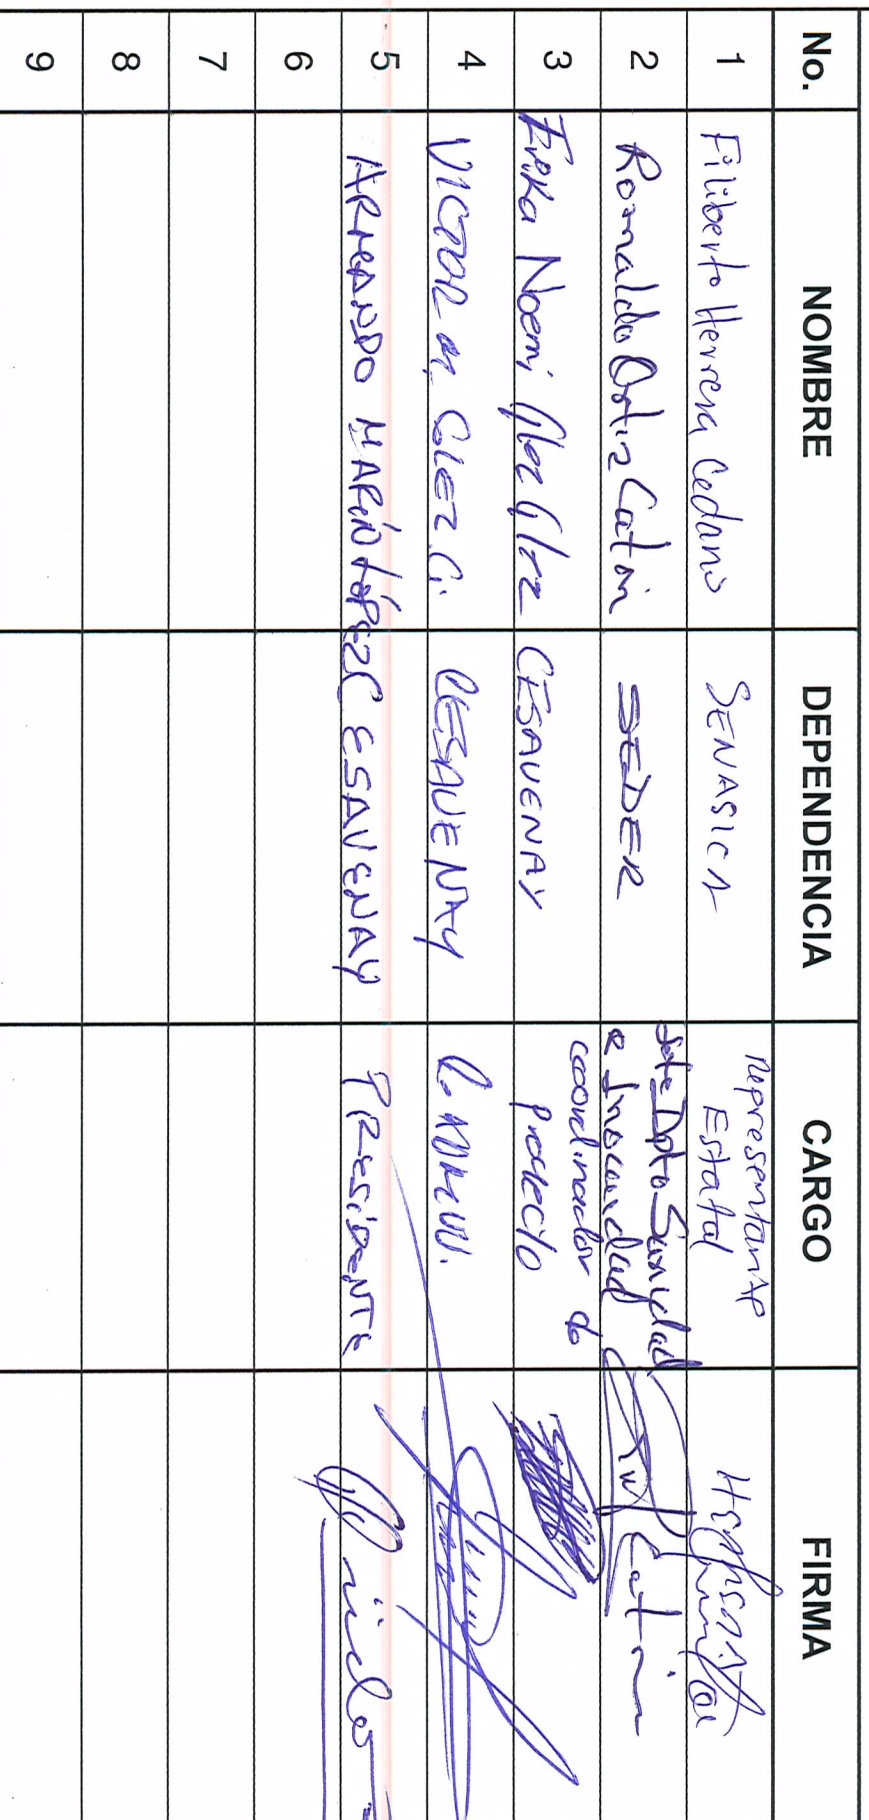 No. NOMBRE DEPENDENCIA CARGO FIRMA
1 Filiberto Herrera Cedano SENASICA Representante Estatal
2 Romaldo Ortiz Catón SEDER Jefe Dpto Sanidad e Inocuidad
3 Erika Noemi CESAVENAY coordinador de Proyecto
4 VICTOR M. CESAVENAY
5 ARMANDO MARÍN LÓPEZ CESAVENAY PRESIDENTE
6
7
8
9